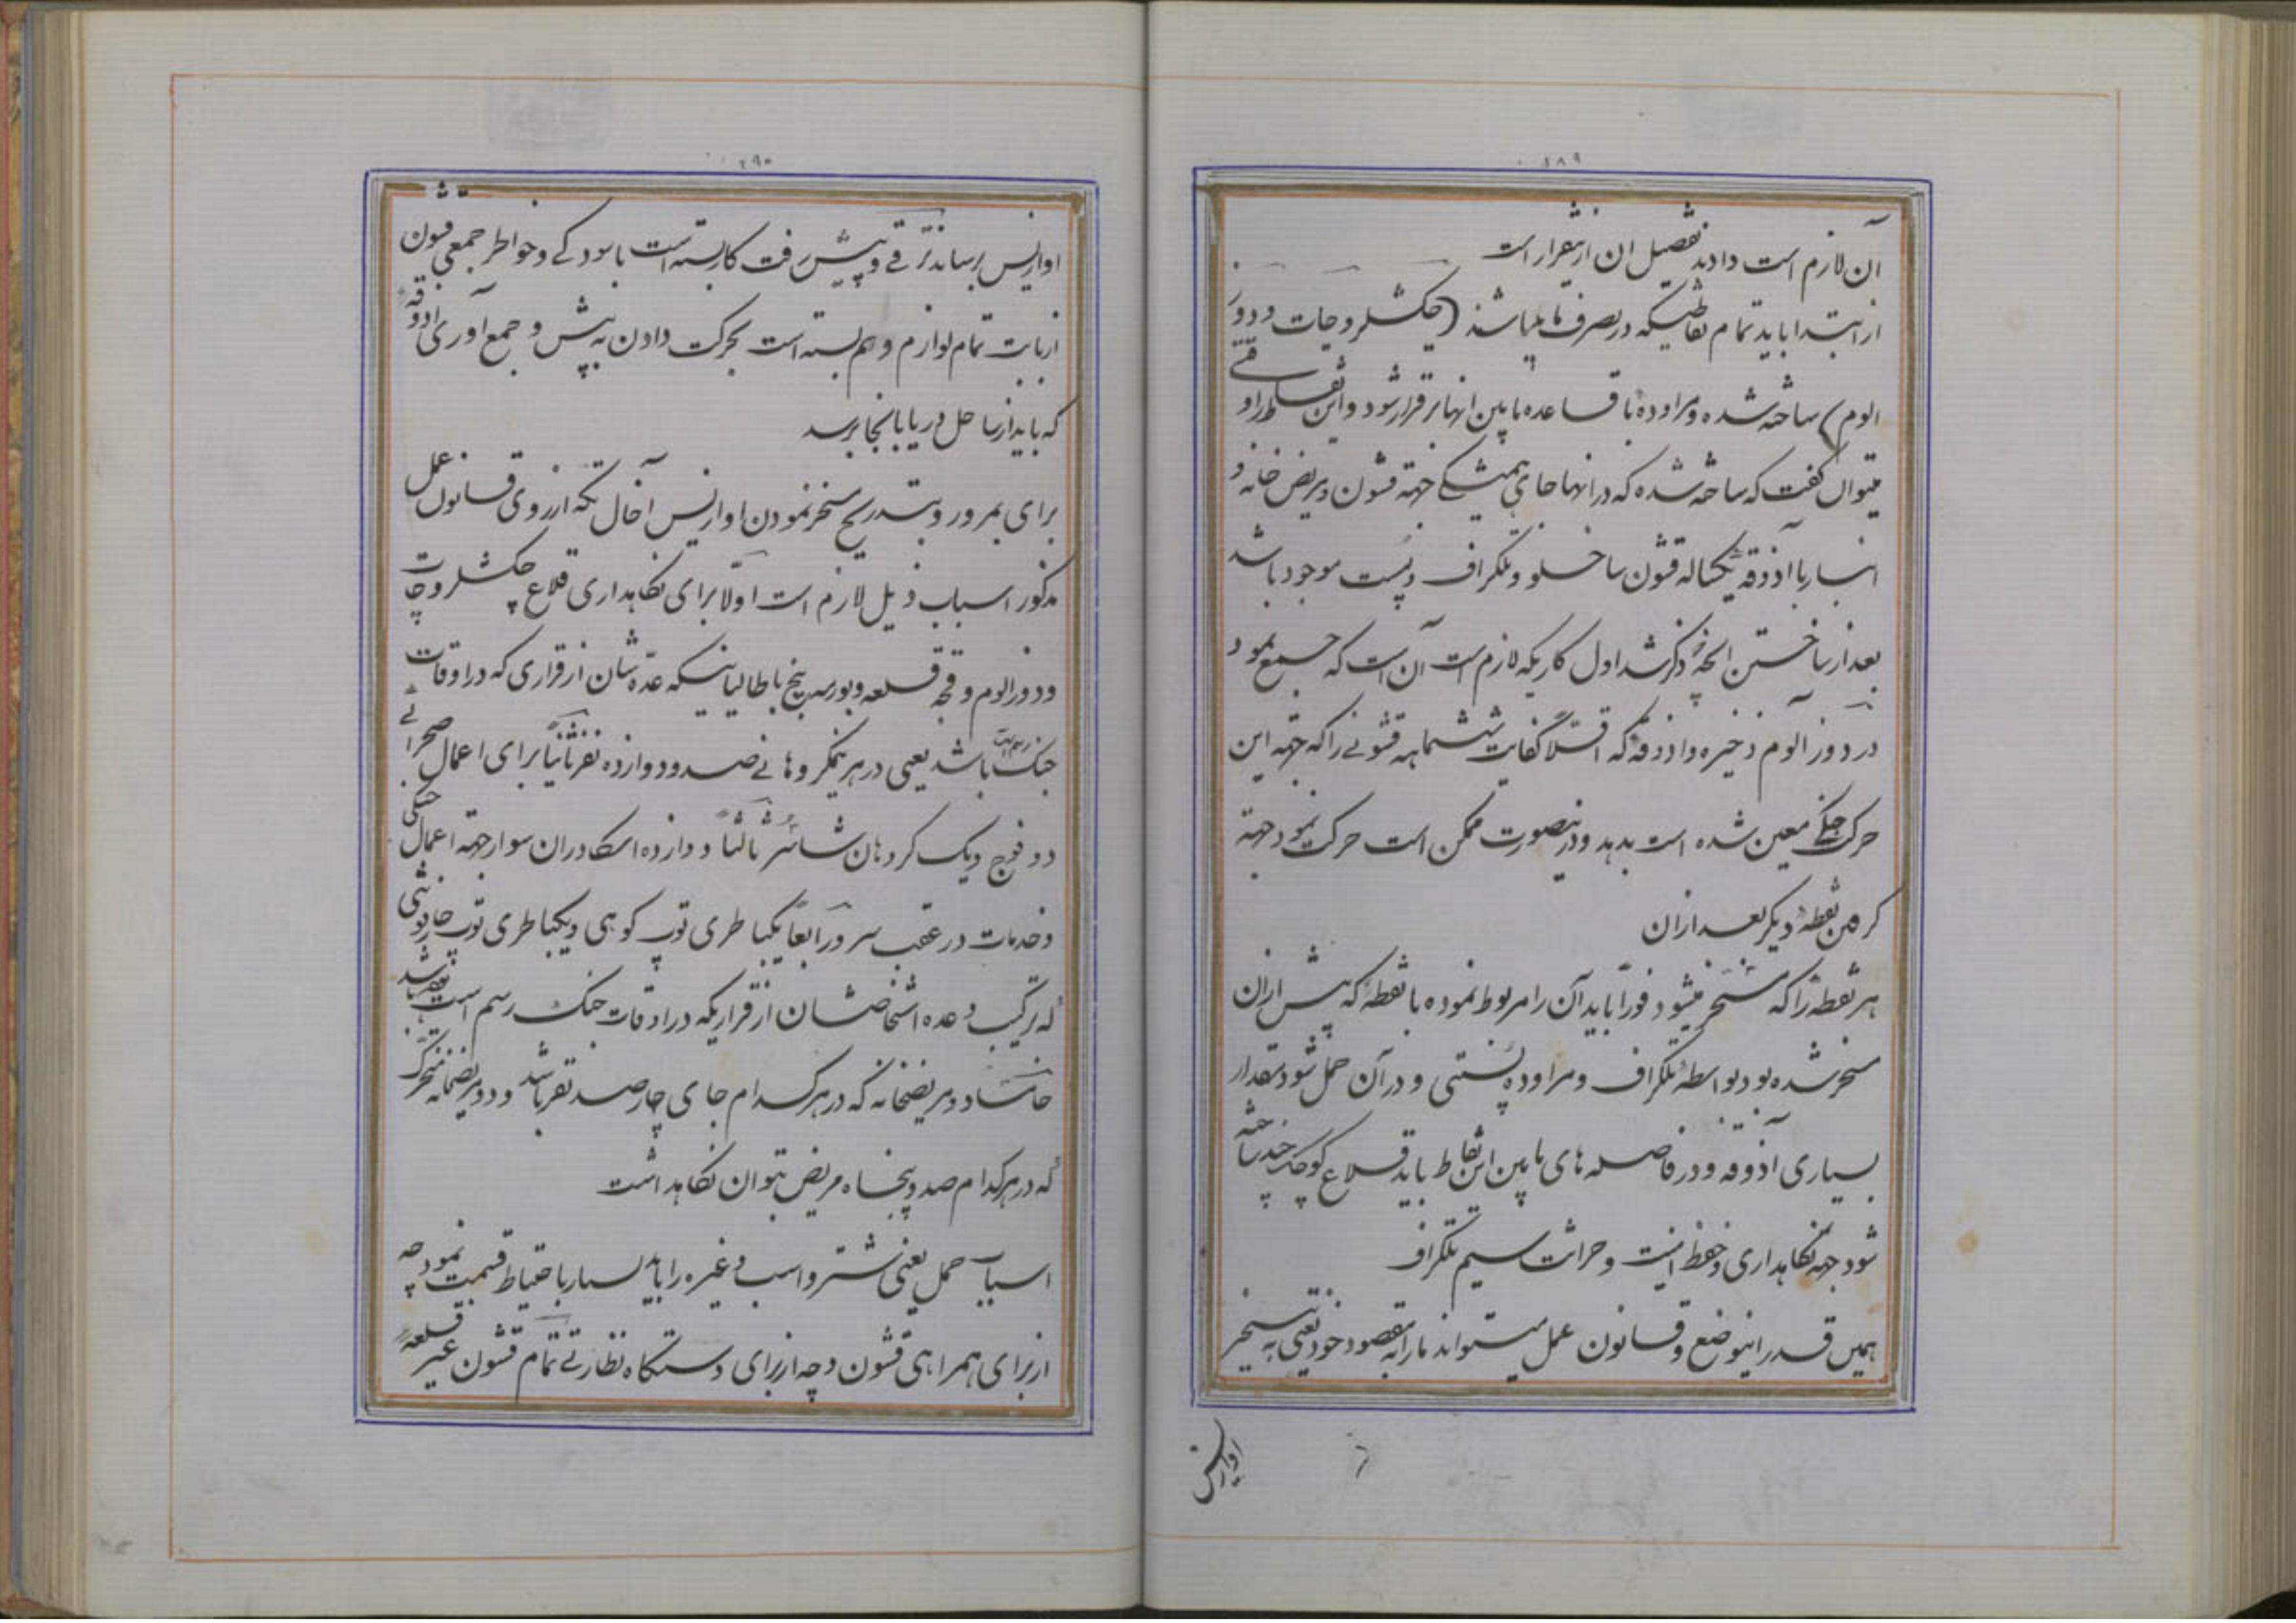 ۱۸۹
آن لازم است دادند تفصیل ان ازینقرار است
از ابتدا باید تمام نقاطیکه در تصرف ما میباشند (چکشلر و چات و دوز
الوم) ساخته شده و مراوده با قاعده مابین انها برقرار شود و این نقاط را و
میتوان گفت که ساخته شده که در انها جای همیشگی جهته قشون و مریض خانه و
انبار با آذوقه یکساله قشون ساخلو و تلگراف و پست موجود باشد
بعد از ساختن انچه ذکر شد اول کاریکه لازم است آن است که جمع نمود
در دوز آلوم ذخیره و اذوقه که اقلاً کفایت ششماهه قشونی را که جهته این
حرکت جنگی معین شده است بدهد و در ینصورت ممکن است حرکت نمود جهته
گرفتن نقطه دیگر بعد ازان
هر نقطه را که مسخر میشود فوراً باید آن را مربوط نموده با نقطه که پیش ازان
مسخر شده بود بواسطه تلگراف و مراوده پستی و در آن حمل شود مقدار
بسیاری آذوقه و در فاصله های مابین این نقاط باید قلاع کوچک چند ساخته
شود جهته نگاهداری و حفظ امنیت و حراثت سیم تلگراف
همین قدر اینوضع و قانون عمل میتواند ما را بمقصود خود یعنی به تسخیر
اوازیس
۱۹۰
اوازیس برساند ترقی و پیش رفت کار بسته است باسودگی و خواطر جمعی قشون
از بابت تمام لوازم و هم بسته است بحرکت دادن به پیش و جمع آوری اذوقه
که باید از ساحل دریا بانجا برسد
برای بمرور و بتدریج مسخر نمودن اوازیس آخال تکه از روی قانون عمل
مذکور اسباب ذیل لازم است اولا برای نگاهداری قلاع چکشلر و چات
و دوز الوم و قجه قلعه و بورمه پنج باطالیانیکه عده شان از قراری که در اوقات
جنک رسم است باشد یعنی در هر یمکروهانی صد و دوازده نفر ثانیاً برای اعمال صحرائی
دو فوج و یک کروهان شاسر ثالثاً دوازده اسکادران سوار جهته اعمال جنگی
و خدمات در عقب سر و رابعاً یکباطری توپ کوهی و یکباطری توپ چارپوندی
که ترکیب و عده اشخاصشان از قراریکه در اوقات جنک رسم است باشد
خامساً دو مریضخانه که در هر کدام جای چارصد نفر باشد و دو مریضخانه متحرک
که در هر کدام صد و پنجاه مریض بتوان نگاهداشت
اسباب حمل یعنی شتر و اسب و غیره را باید بسیار با حتیاط قسمت نمود چه
از برای همراهی قشون و چه از برای دستگاه نظارتی تمام قشون غیر قلعه